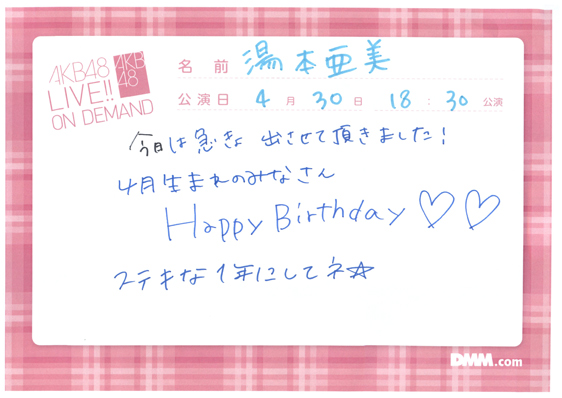 AKB48
LIVE!!
ON DEMAND
AKB
48
名前 湯本亜美
公演日 4月30日 18:30公演
今日は急きょ 出させて頂きました!
4月生まれのみなさん
Happy Birthday♡♡
ステキな1年にしてネ☆
DMM.com